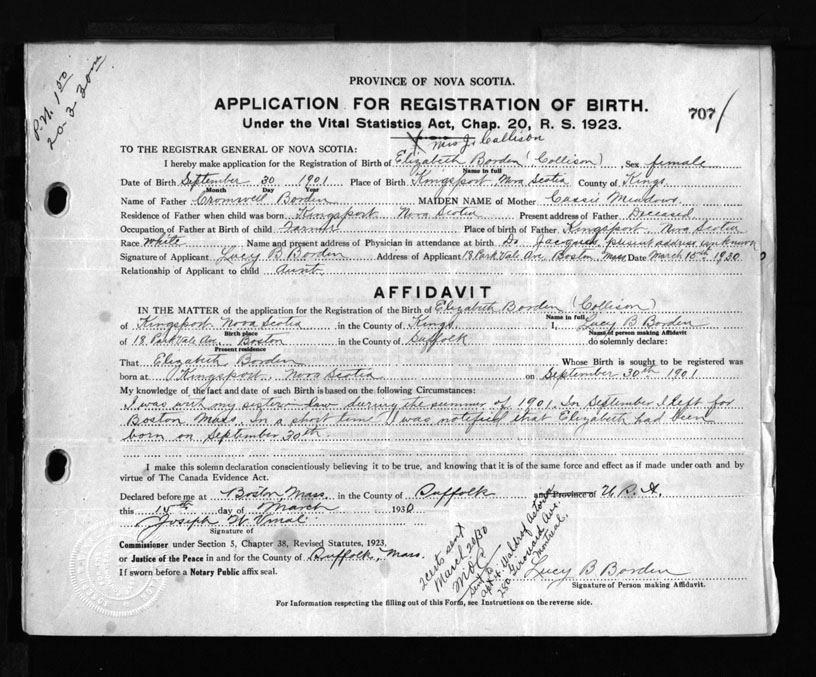 P.N. 1.50
20-3-30
PROVINCE OF NOVA SCOTIA.
APPLICATION FOR REGISTRATION OF BIRTH.
707
Under the Vital Statistics Act, Chap. 20, R. S. 1923.
Mrs J. Collison
TO THE REGISTRAR GENERAL OF NOVA SCOTIA:
I hereby make application for the Registration of Birth of Elizabeth Borden (Collison) Sex female
Name in full
Date of Birth September 30 1901 Place of Birth Kingsport Nova Scotia County of Kings
Month Day Year
Name of Father Cromwell Borden MAIDEN NAME of Mother Cassie Meadows
Residence of Father when child was born Kingsport Nova Scotia Present address of Father Deceased
Occupation of Father at Birth of child Farmer Place of birth of Father Kingsport, Nova Scotia
Race White Name and present address of Physician in attendance at birth Dr Jacques, present address unknown
Signature of Applicant Lucy B Borden Address of Applicant 18 Park Vale Ave, Boston, Mass Date March 15th 1930
Relationship of Applicant to child Aunt
AFFIDAVIT
IN THE MATTER of the application for the Registration of the Birth of Elizabeth Borden (Collison)
Name in full
of Kingsport Nova Scotia in the County of Kings I, Lucy B Borden
Birth place Name of person making Affidavit
of 18 Park Vale Ave Boston in the County of Suffolk do solemnly declare:
Present residence
That Elizabeth Borden Whose Birth is sought to be registered was
born at Kingsport, Nova Scotia on September 30th 1901
My knowledge of the fact and date of such Birth is based on the following Circumstances:
I was with my sister-in-law during the summer of 1901. In September I left for
Boston Mass. In a short time I was notified that Elizabeth had been
born on September 30th.
I make this solemn declaration conscientiously believing it to be true, and knowing that it is of the same force and effect as if made under oath and by
virtue of The Canada Evidence Act.
Declared before me at Boston Mass. in the County of Suffolk and Province of U.S.A.
this 15th day of March 1930
Joseph W. Vinal
Signature of
Commissioner under Section 5, Chapter 38, Revised Statutes, 1923,
or Justice of the Peace in and for the County of Suffolk, Mass.
If sworn before a Notary Public affix seal.
2 certs sent
March 20/30
Girouard Ave.
Montreal.
Lucy B Borden
Signature of Person making Affidavit.
For Information respecting the filling out of this Form, see Instructions on the reverse side.